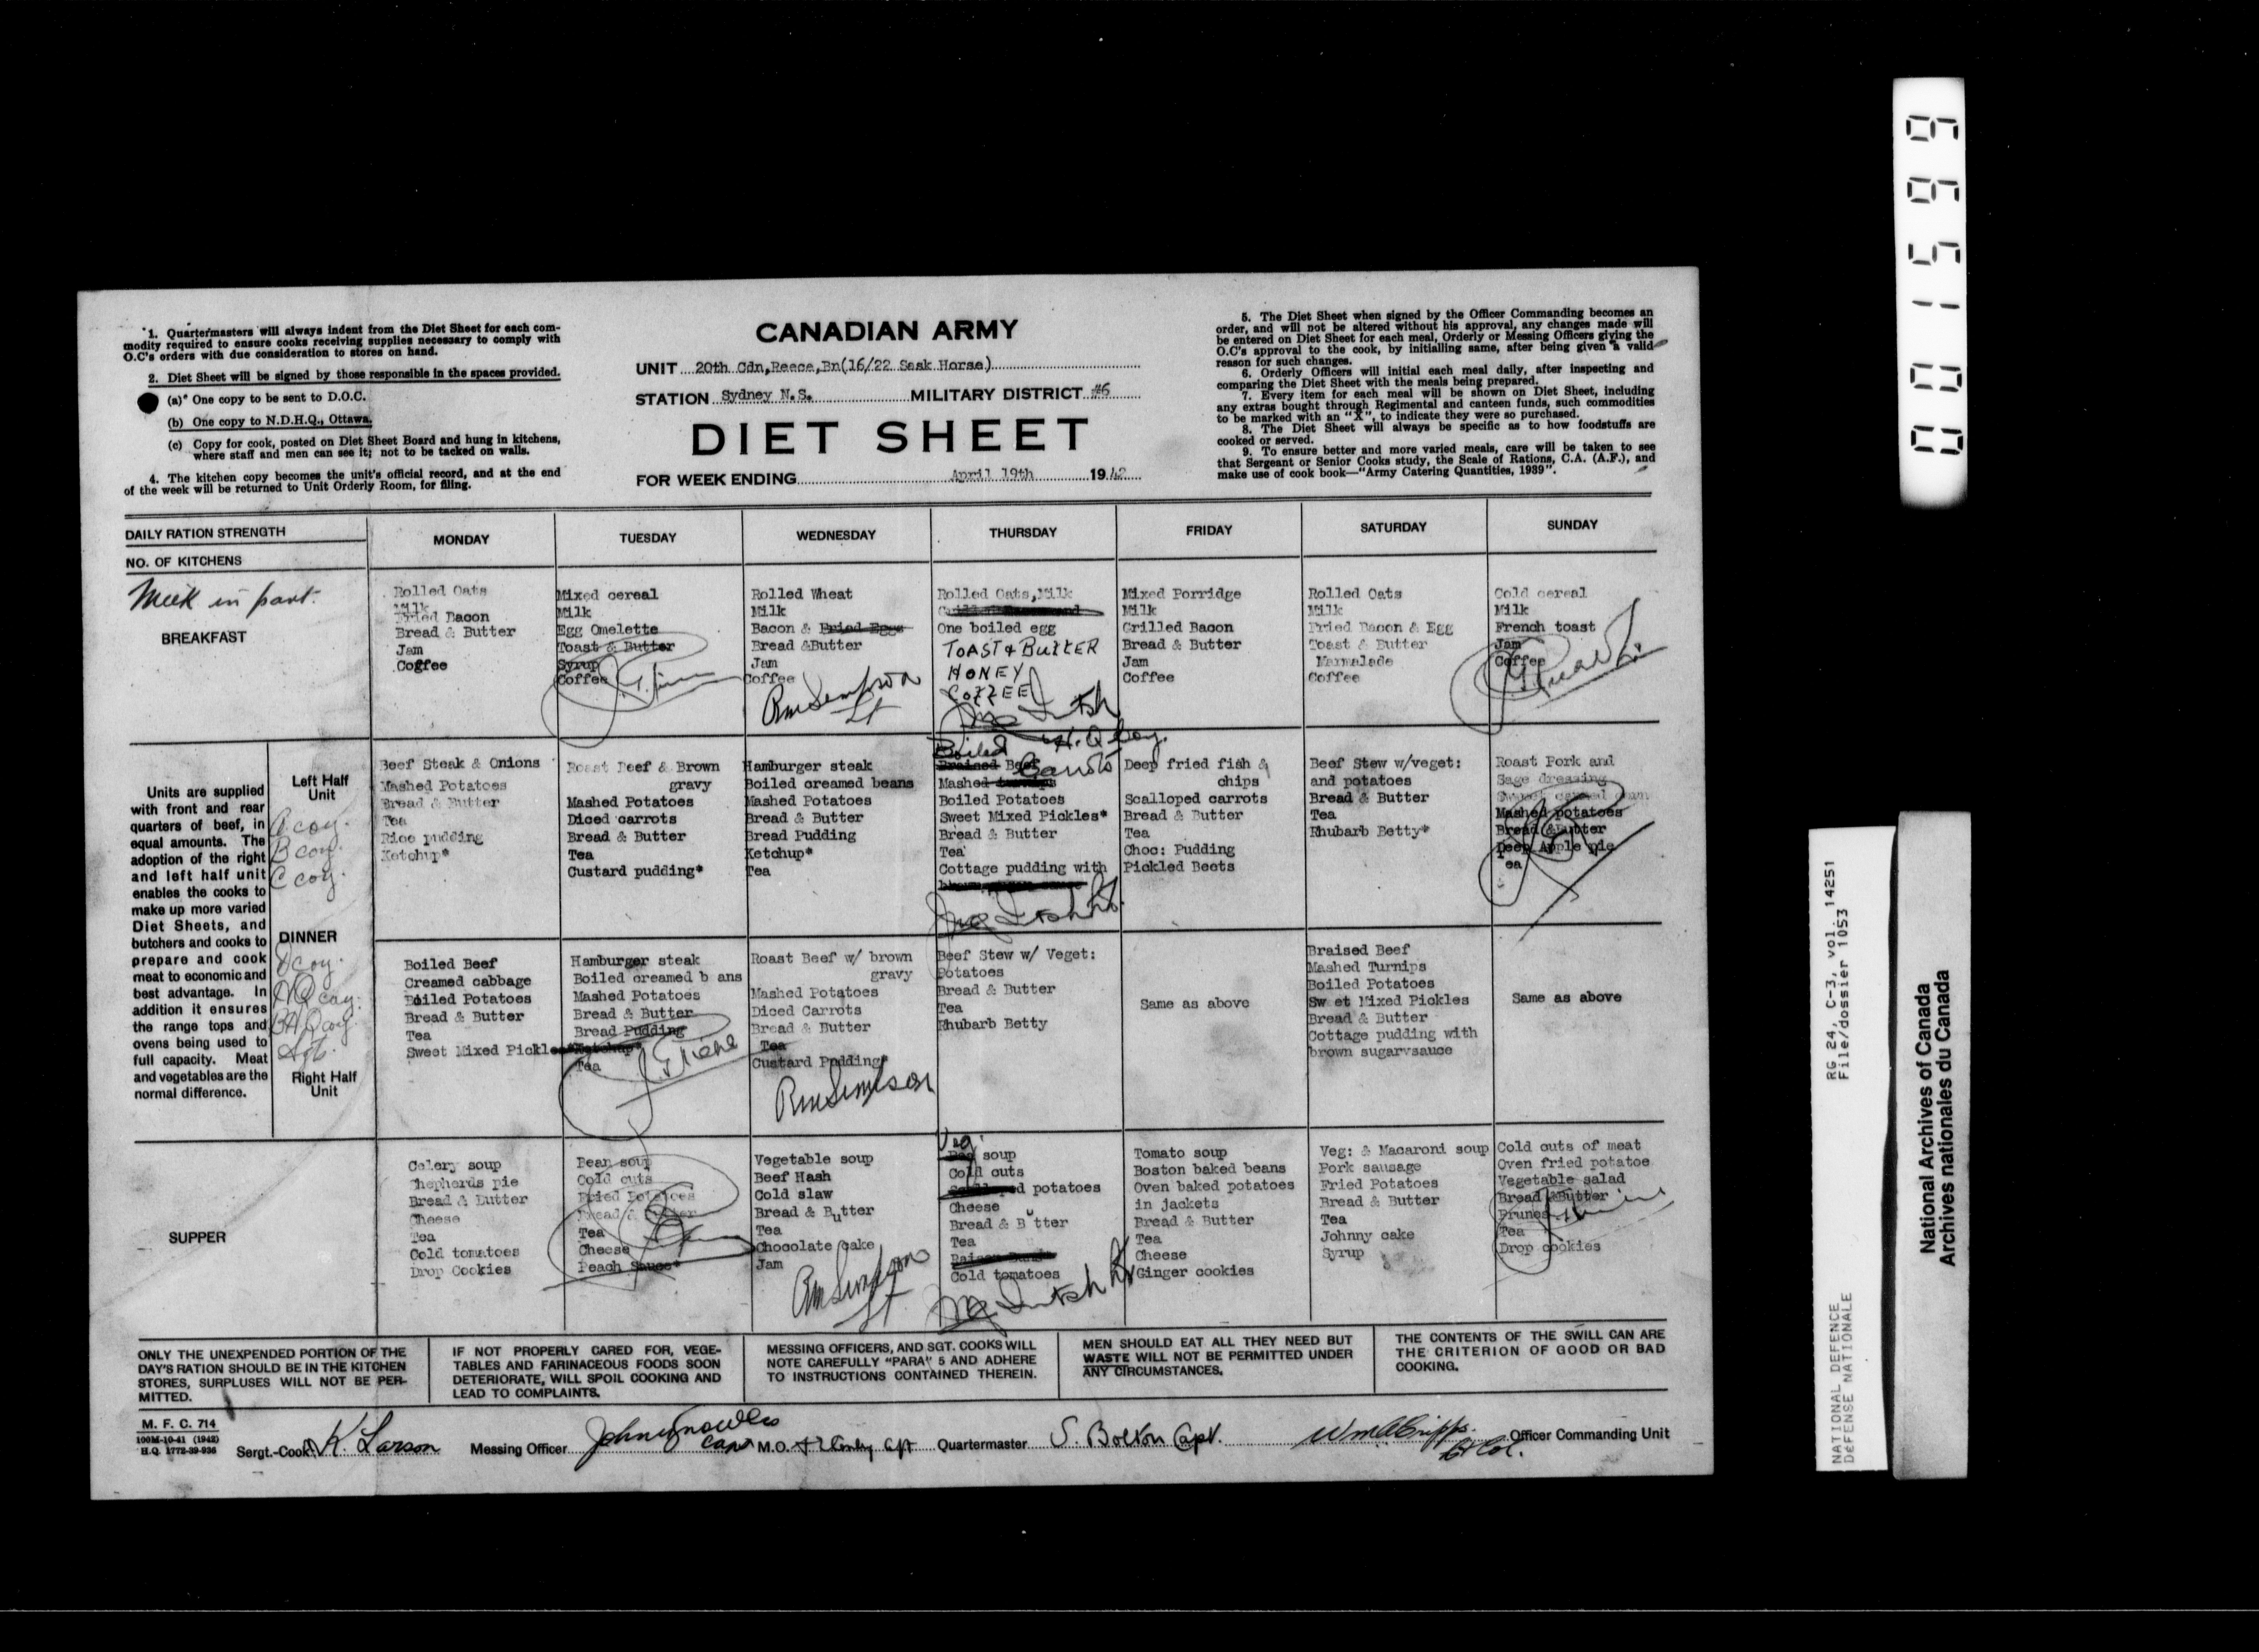 1. Quartermasters will always indent from the Diet Sheet for each com-
modity required to ensure cooks receiving supplies necessary to comply with
O.C's orders with due consideration to stores on hand.
2. Diet Sheet will be signed by those responsible in the spaces provided.
(a) One copy to be sent to D.O.C.
(b) One copy to N.D.H.Q., Ottawa.
(c) Copy for cook, posted on Diet Sheet Board and hung in kitchens,
where staff and men can see it; not to be tacked on walls.
4. The kitchen copy becomes the unit's official record, and at the end
of the week will be returned to Unit Orderly Room, for filing.
CANADIAN ARMY
UNIT 20th Cdn,Reece,Bn(16/22 Sask Horse)
STATION Sydney N.S. MILITARY DISTRICT #6
DIET SHEET
FOR WEEK ENDING April 19th 1942
5. The Diet Sheet when signed by the Officer Commanding becomes an
order, and will not be altered without his approval, any changes made will
be entered on Diet Sheet for each meal, Orderly or Messing Officers giving the
O.C's approval to the cook, by initialling same, after being given a valid
reason for such changes.
6. Orderly Officers will initial each meal daily, after inspecting and
comparing the Diet Sheet with the meals being prepared.
7. Every item for each meal will be shown on Diet Sheet, including
any extras bought through Regimental and canteen funds, such commodities
to be marked with an "X", to indicate they were so purchased.
8. The Diet Sheet will always be specific as to how foodstuffs are
cooked or served.
9. To ensure better and more varied meals, care will be taken to see
that Sergeant or Senior Cooks study, the Scale of Rations, C.A. (A.F.), and
make use of cook book—"Army Catering Quantities, 1939".
DAILY RATION STRENGTH
NO. OF KITCHENS
MONDAY
TUESDAY
WEDNESDAY
THURSDAY
FRIDAY
SATURDAY
SUNDAY
in part.
BREAKFAST
Rolled Oats
Milk
Fried Bacon
Bread & Butter
Jam
Cogfee
Mixed cereal
Milk
Egg Omelette
Toast & Butter
Syrup
Coffee
Rolled Wheat
Milk
Bacon & Fried Eggs
Bread &Butter
Jam
Coffee
RM Simpson
Lt
Rolled Oats,Milk
One boiled egg
TOAST & BUTTER
HONEY
COFFEE
Mixed Porridge
Milk
Grilled Bacon
Bread & Butter
Jam
Coffee
Rolled Oats
Milk
Fried Bacon & Egg
Toast & Butter
Marmalade
Coffee
Cold cereal
Milk
French toast
Jam
Coffee
Units are supplied
with front and rear
quarters of beef, in
equal amounts. The
adoption of the right
and left half unit
enables the cooks to
make up more varied
Diet Sheets, and
butchers and cooks to
prepare and cook
meat to economic and
best advantage. In
addition it ensures
the range tops and
ovens being used to
full capacity. Meat
and vegetables are the
normal difference.
Left Half
Unit
A coy.
B coy.
C coy.
DINNER
D coy.
HQ coy.
Right Half
Unit
Beef Steak & Onions
Mashed Potatoes
Bread & Butter
Tea
Rice pudding
Ketchup*
Roast Beef & Brown
gravy
Mashed Potatoes
Diced carrots
Bread & Butter
Tea
Custard pudding*
Hamburger steak
Boiled creamed beans
Mashed Potatoes
Bread & Butter
Bread Pudding
Ketchup*
Tea
H.Q Coy.
Boiled
Braised Beef
Mashed turnips Carrots
Boiled Potatoes
Sweet Mixed Pickles*
Bread & Butter
Tea
Cottage pudding with
brown sugar sauce
Deep fried fish &
chips
Scalloped carrots
Bread & Butter
Tea
Choc: Pudding
Pickled Beets
Beef Stew w/veget:
and potatoes
Bread & Butter
Tea
Rhubarb Betty*
Roast Pork and
Sage dressing
Mashed potatoes
Bread &Butter
Deep Apple pie
Tea
Boiled Beef
Creamed cabbage
Boiled Potatoes
Bread & Butter
Tea
Sweet Mixed Pickles*
Hamburger steak
Boiled creamed b ans
Mashed Potatoes
Bread & Butter
Bread Pudding
Ketchup*
Tea
Roast Beef w/ brown
gravy
Mashed Potatoes
Diced Carrots
Bread & Butter
Tea
Custard Pudding*
RM Simpson
Beef Stew w/ Veget:
Potatoes
Bread & Butter
Tea
Rhubarb Betty
Same as above
Braised Beef
Mashed Turnips
Boiled Potatoes
Sw et Mixed Pickles
Bread & Butter
Cottage pudding with
brown sugarvsauce
Same as above
SUPPER
Celery soup
Shepherds pie
Bread & Butter
Cheese
Tea
Cold tomatoes
Drop Cookies
Bean soup
Cold cuts
Fried Potatoes
Bread & Butter
Tea
Cheese
Peach Sauce*
Vegetable soup
Beef Hash
Cold slaw
Bread & Butter
Tea
Chocolate cake
Jam
RM Simpson
Lt
Veg.
soup
Cold cuts
potatoes
Cheese
Bread & Butter
Tea
Cold tomatoes
Tomato soup
Boston baked beans
Oven baked potatoes
in jackets
Bread & Butter
Tea
Cheese
Ginger cookies
Veg: & Macaroni soup
Pork sausage
Fried Potatoes
Bread & Butter
Tea
Johnny cake
Syrup
Cold cuts of meat
Oven fried potatoe
Vegetable salad
Bread &Butter
Prunes
Tea
Drop cookies
ONLY THE UNEXPENDED PORTION OF THE
DAY'S RATION SHOULD BE IN THE KITCHEN
STORES, SURPLUSES WILL NOT BE PER-
MITTED.
IF NOT PROPERLY CARED FOR, VEGE-
TABLES AND FARINACEOUS FOODS SOON
DETERIORATE, WILL SPOIL COOKING AND
LEAD TO COMPLAINTS.
MESSING OFFICERS, AND SGT. COOKS WILL
NOTE CAREFULLY "PARA" 5 AND ADHERE
TO INSTRUCTIONS CONTAINED THEREIN.
MEN SHOULD EAT ALL THEY NEED BUT
WASTE WILL NOT BE PERMITTED UNDER
ANY CIRCUMSTANCES.
THE CONTENTS OF THE SWILL CAN ARE
THE CRITERION OF GOOD OR BAD
COOKING.
M. F. C. 714
100M-10-41 (1942)
H.Q. 1772-39-936
Sergt.-Cook K. Larson
Messing Officer John Knowles Capt
M.O.
Quartermaster S. Bolton Capt.
Lt Col. Officer Commanding Unit
0001599
RG 24, C-3, vol. 14251
File/dossier 1053
NATIONAL DEFENCE
DÉFENSE NATIONALE
National Archives of Canada
Archives nationales du Canada